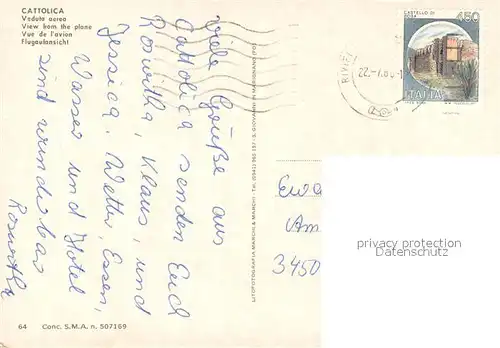 CATTOLICA
Veduta aerea
View from the plane
Vue de l'avion
Flugaufansicht
Viele Grüße aus
Cattolica senden Euch
Roswitha, Klaus, und
Jessica. Wetter, Essen,
Wasser und Hotel
sind wunderbar
Roswitha
LITOFOTOGRAFIA MARCHI & MARCHI - TEL. (0541) 963 157 - S. GIOVANNI IN MARIGNANO (FO)
64 Conc. S.M.A. n. 507169
CASTELLO DI
450
ITALIA
RIMINI
22.-7.86
Ewa
Am
3450
privacy protection
Datenschutz